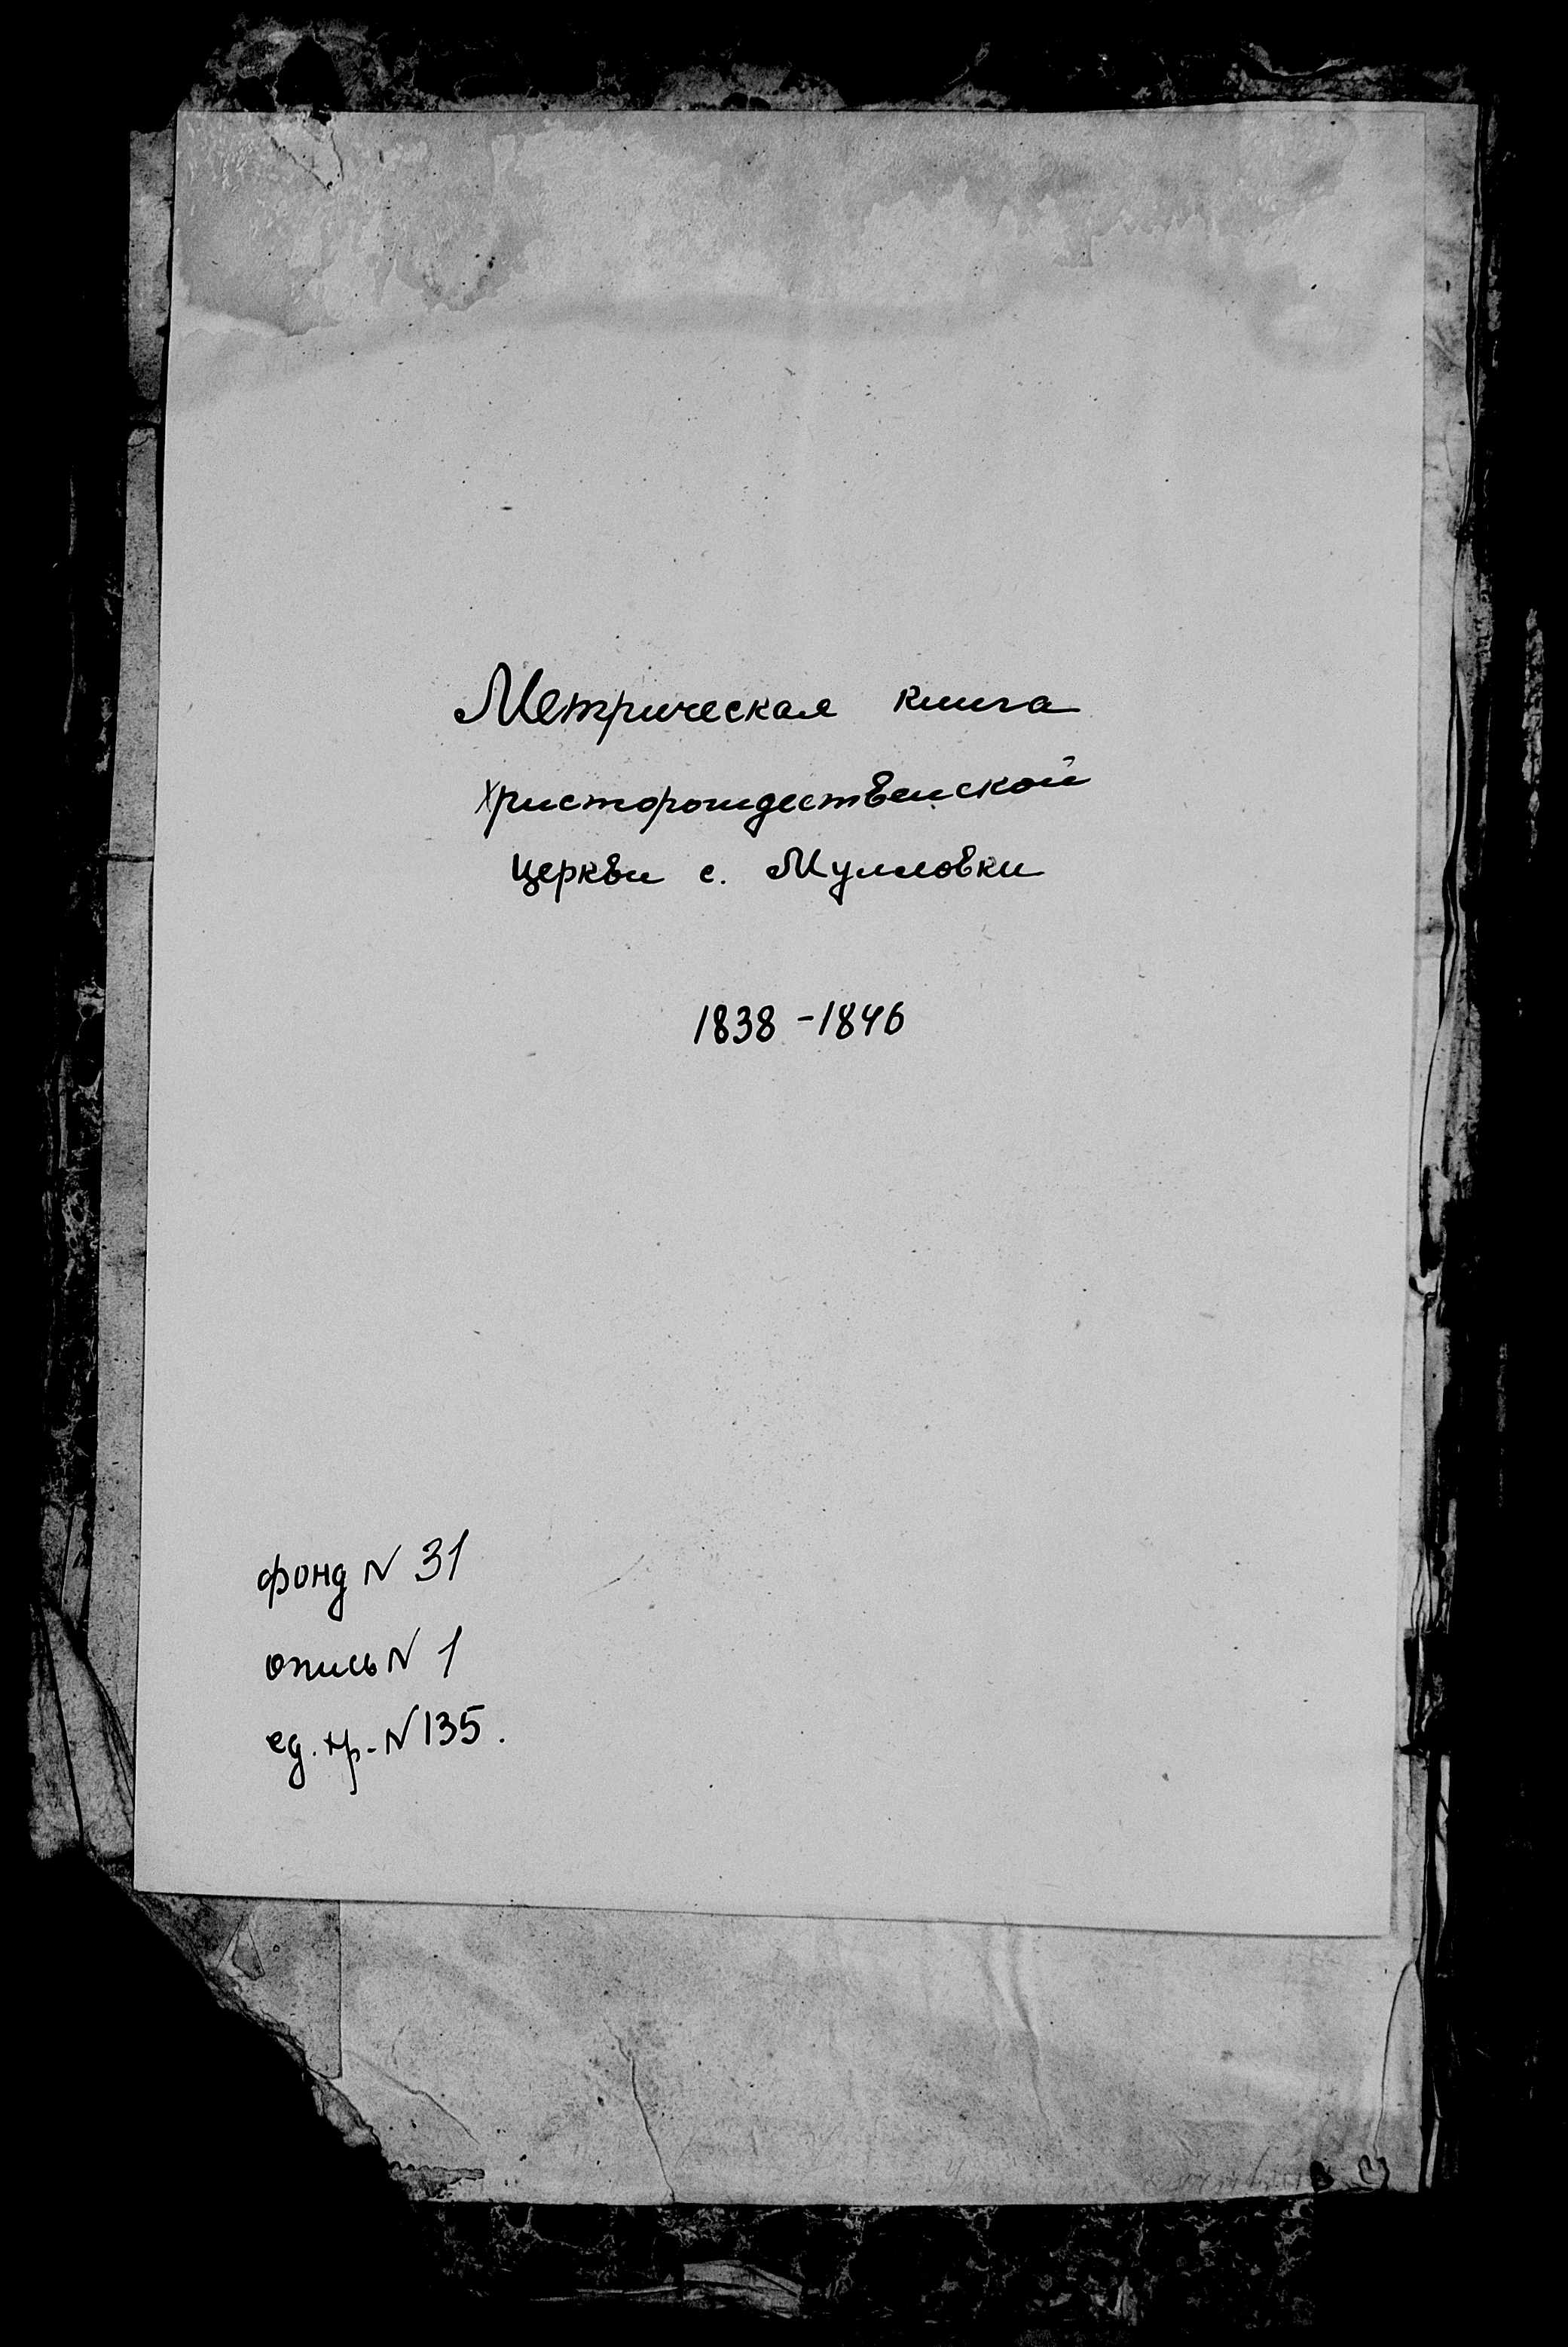 Метрическая книга
Христорождественской
церкви с. Мулловки
1838 - 1846
фонд N 31
опись N 1
ед. хр. N 135.